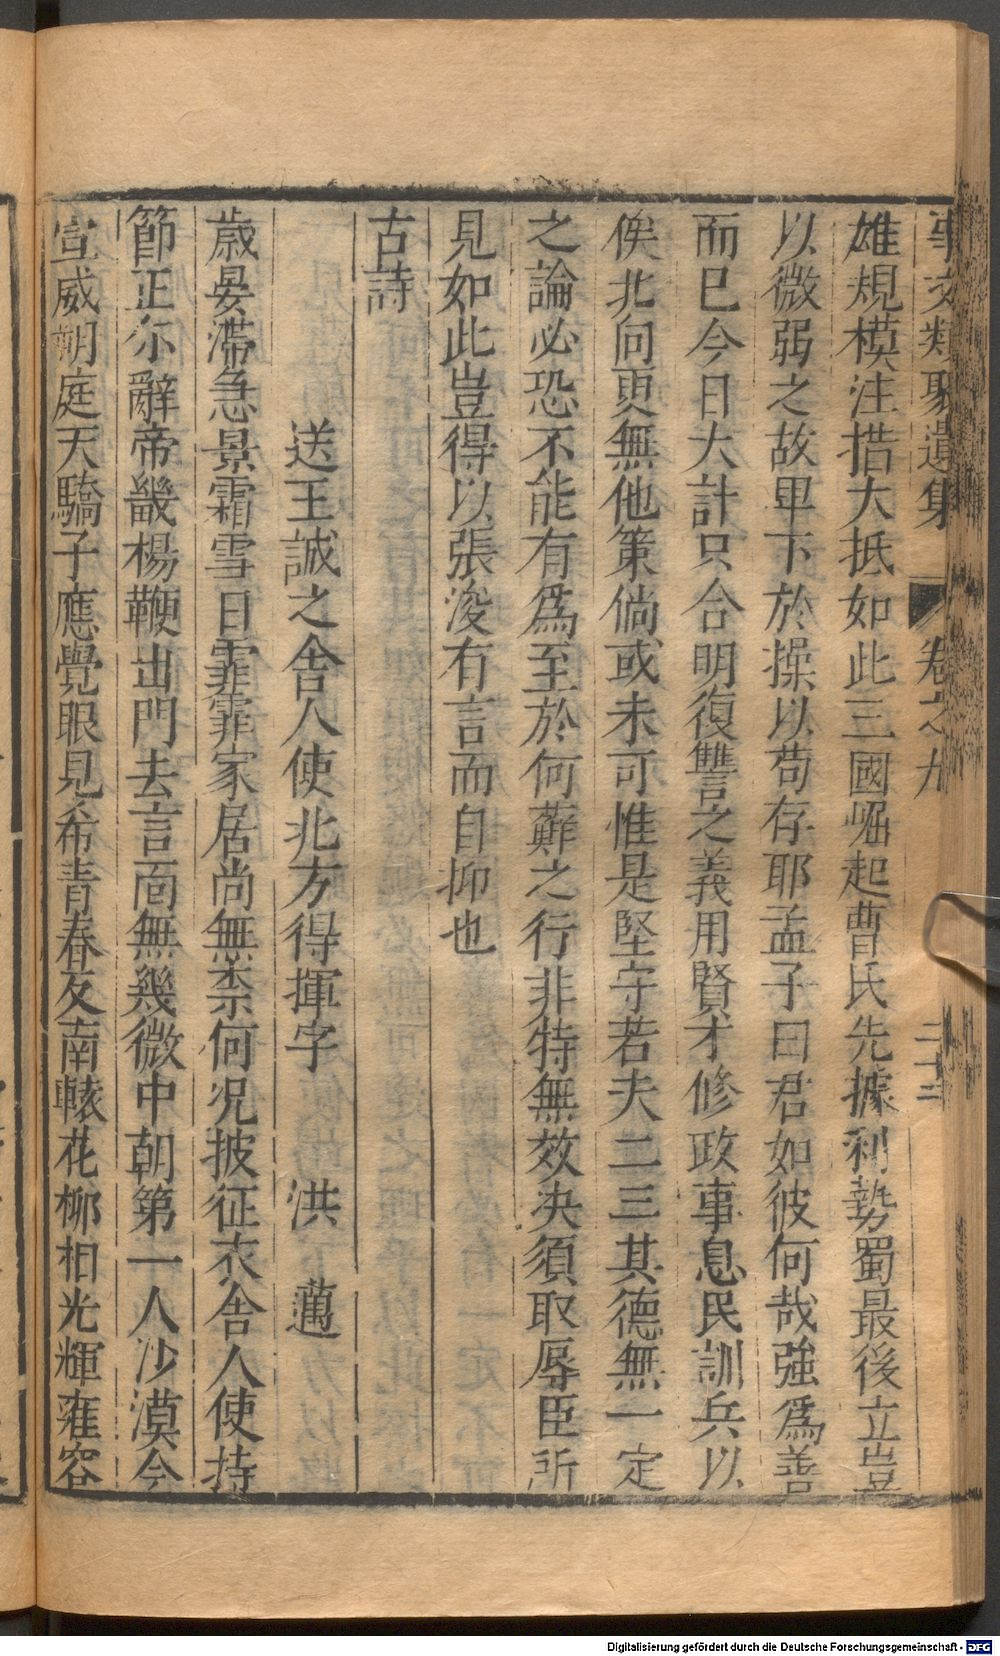 事文類聚遺集 卷之九 二十二
雄規模注措大抵如此三國崛起曹氏先據利勢蜀最後立豈
以微弱之故卑下於操以苟存耶孟子曰君如彼何哉強為善
而已今日大計只合明復讐之義用賢才修政事息民訓兵以
俟北向更無他策倘或未可惟是堅守若夫二三其德無一定
之論必恐不能有為至於何蘚之行非特無效決須取辱臣所
見如此豈得以張浚有言而自抑也
古詩
送王誠之舍人使北方得揮字 洪 邁
歲晏滯急景霜雪日霏霏家居尚無柰何况披征衣舍人使持
節正尓辭帝畿楊鞭出門去言面無幾微中朝第一人沙漠今
宣威朔庭天驕子應覺眼見希青春反南轅花柳相光輝雍容
Digitalisierung gefördert durch die Deutsche Forschungsgemeinschaft - DFG